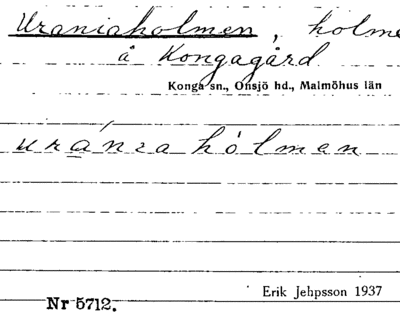 Uraniaholmen, holme
å Kongagård
Konga sn., Onsjö hd., Malmöhus län
uránia hòlmən
Erik Jehpsson 1937
Nr 5712.